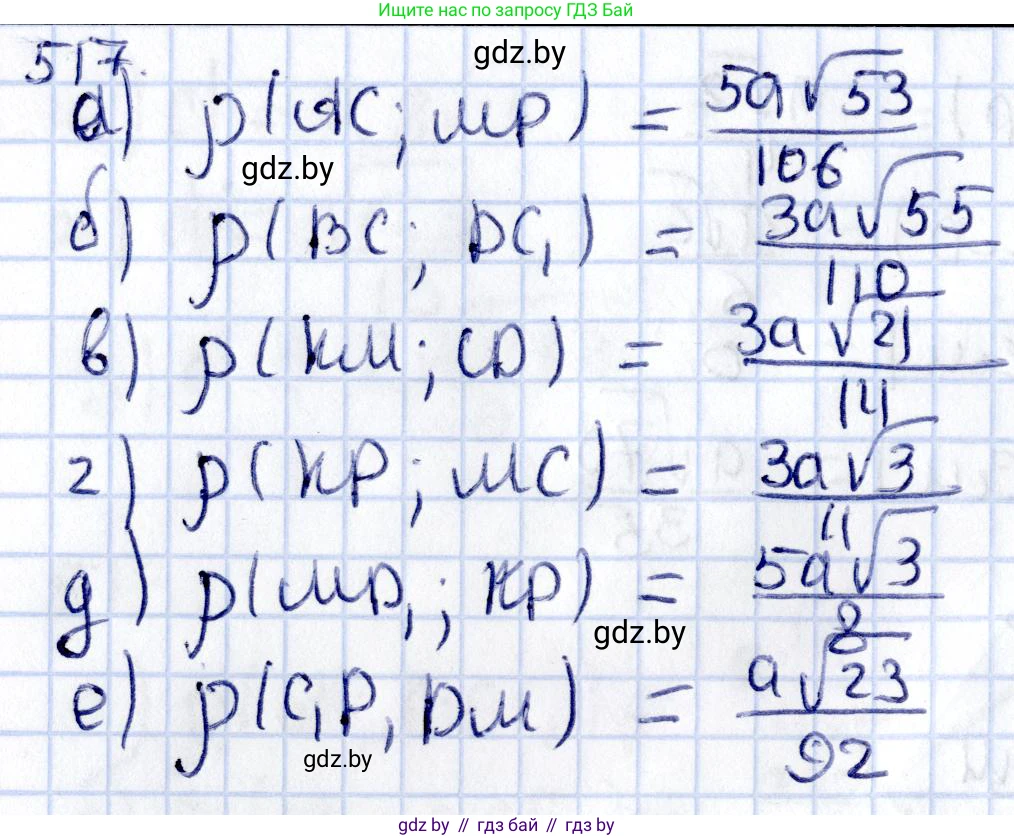 Ищите нас по запросу ГДЗ Бай
517.
gdz.by
а) ρ(AC; MP) = 5a√53/106
gdz.by
б) ρ(BC; DC₁) = 3a√55/110
в) ρ(KM; CD) = 3a√21/14
г) ρ(KP; MC) = 3a√3/11
д) ρ(MD₁; KP) = 5a√3/8
gdz.by
е) ρ(C₁P, DM) = a√23/92
gdz.by
gdz.by // гдз бай // гдз by